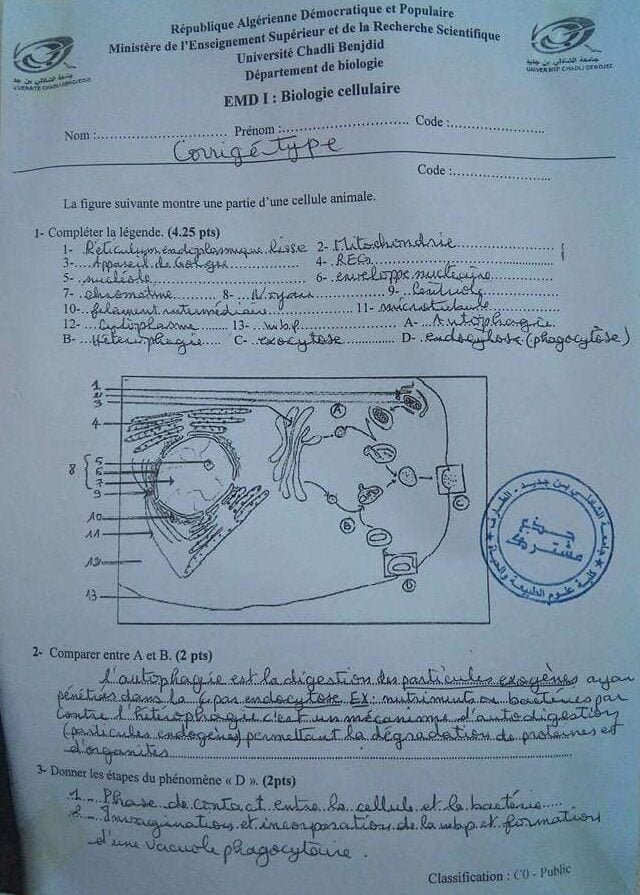 République Algérienne Démocratique et Populaire
Ministère de l'Enseignement Supérieur et de la Recherche Scientifique
Université Chadli Benjdid
Département de biologie
EMD I : Biologie cellulaire
Nom :.............. Prénom :.............. Code :..............
Corrigé type
Code :..............
La figure suivante montre une partie d'une cellule animale.
1- Compléter la légende. (4.25 pts)
1- Réticulum endoplasmique lisse 2- Mitochondrie
3- Appareil de Golgie 4- REG
5- nucléole 6- enveloppe nucléaire
7- chromatine 8- Noyau 9- Centriole
10- filament intermédiaire 11- microtubule
12- cytoplasme 13- mbp A- Autophagie
B- Hétérophagie C- exocytose D- endocytose (phagocytose)
1
2
3
4
5
8 6
7
9
10
11
12
13
A
B
C
D
جامعة الشاذلي بن جديد - الطارف
جذع مشترك
كلية علوم الطبيعة والحياة
2- Comparer entre A et B. (2 pts)
l'autophagie est la digestion des particules exogènes ayan
pénétrés dans la par endocytose EX: nutriments ou bactéries par
contre l'hétérophagie c'est un mécanisme d'autodigestion
(particules endogènes) permettant la dégradation de protéines et
d'organites
3- Donner les étapes du phénomène « D ». (2pts)
1 Phase de contact entre la cellule et la bactérie
2 Invagination et incorporation de la mbp et formation
d'une vacuole phagocytaire.
Classification : C0 - Public